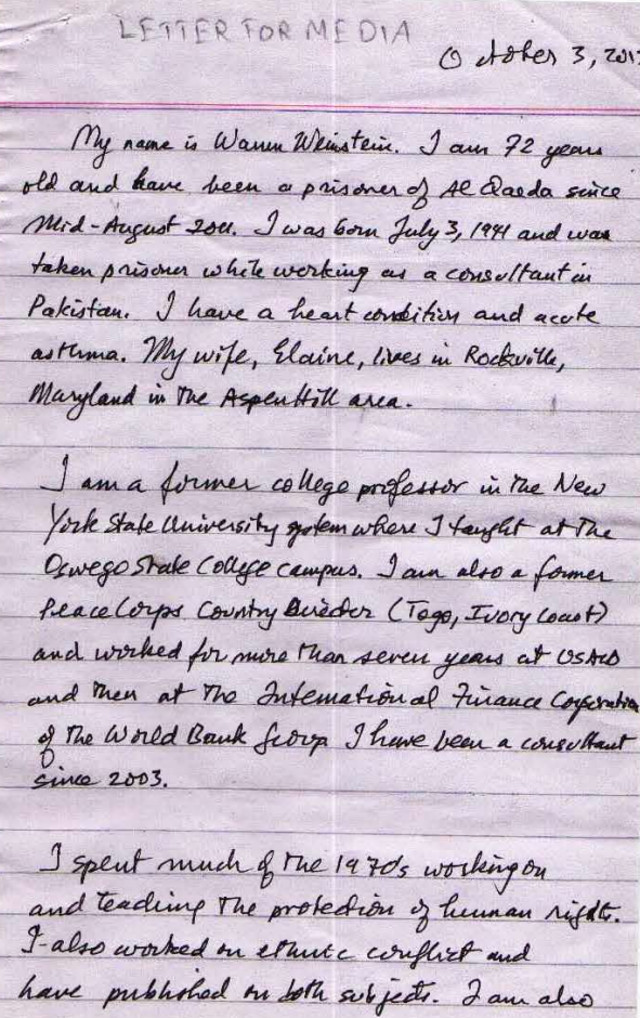 LETTER FOR MEDIA
October 3, 201
My name is Warren Weinstein. I am 72 years
old and have been a prisoner of Al Qaeda since
Mid-August 2011. I was born July 3, 1941 and was
taken prisoner while working as a consultant in
Pakistan. I have a heart condition and acute
asthma. My wife, Elaine, lives in Rockville,
Maryland in the Aspen Hill area.
I am a former college professor in the New
York State University system where I taught at the
Oswego State College campus. I am also a former
Peace Corps Country Director (Togo, Ivory Coast)
and worked for more than seven years at USAID
and then at the International Finance Corporation
of the World Bank Group I have been a consultant
since 2003.
I spent much of the 1970's working on
and teaching the protection of human rights.
I also worked on ethnic conflict and
have published on both subjects. I am also